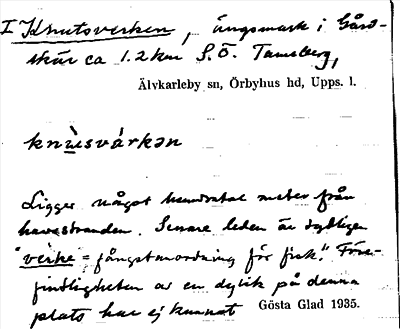 I Knutsverken, ängsmark i Gård-
skär ca 1.2 km S.Ö. Tamsberg,
Älvkarleby sn, Örbyhus hd, Upps. l.
knùsvárkən
Ligger något hundratal meter från
havsstranden. Senare leden är tydligen
"verke = fångstanordning för fisk". Före-
findligheten av en dylik på denna
plats har ej kunnat Gösta Glad 1935.